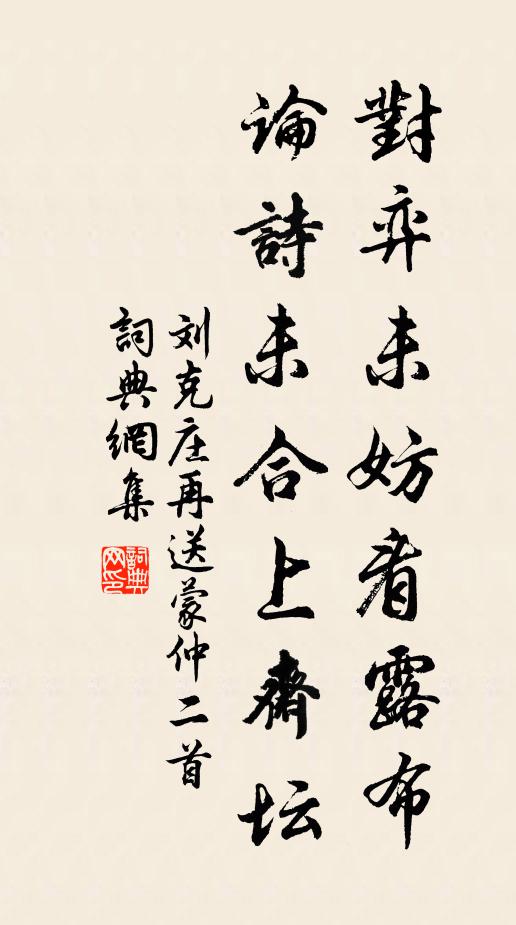 對弈未妨看露布
論詩未合上齋坛
刘克庄再送蒙仲二首
詞典網集
詞典网印